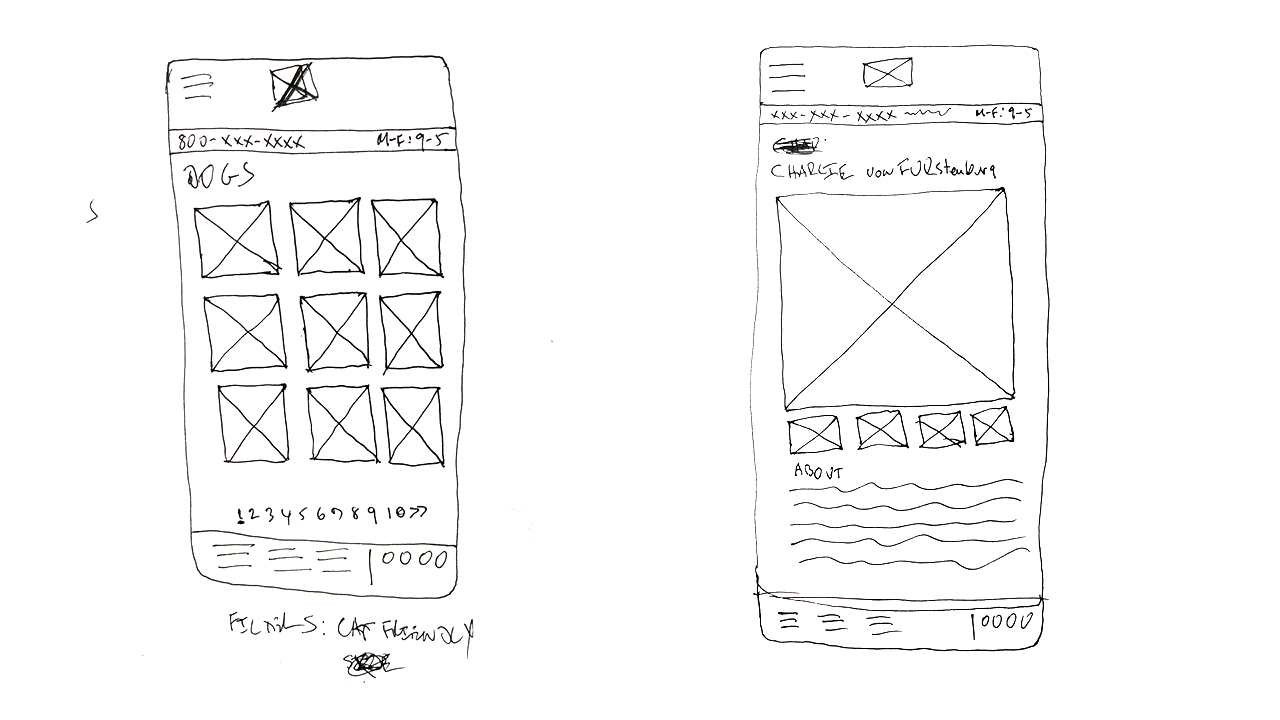 800-XXX-XXXX M-F:9-5
DOGS
1 2 3 4 5 6 7 8 9 10 >>
FILTERS: CAT FRIENDLY
XXX-XXX-XXXX M-F:9-5
CHARLIE von FURstenburg
ABOUT